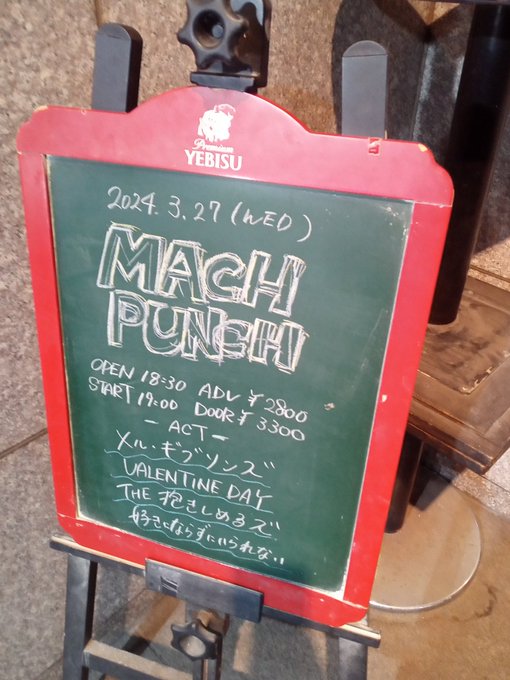 Premium
YEBISU
2024. 3. 27 (WED)
MACH
PUNCH
OPEN 18:30 ADV ¥2800
START 19:00 DOOR ¥3300
- ACT -
メル・ギブソンズ
VALENTINE DAY
THE 抱きしめるズ
好きにならずにいられない